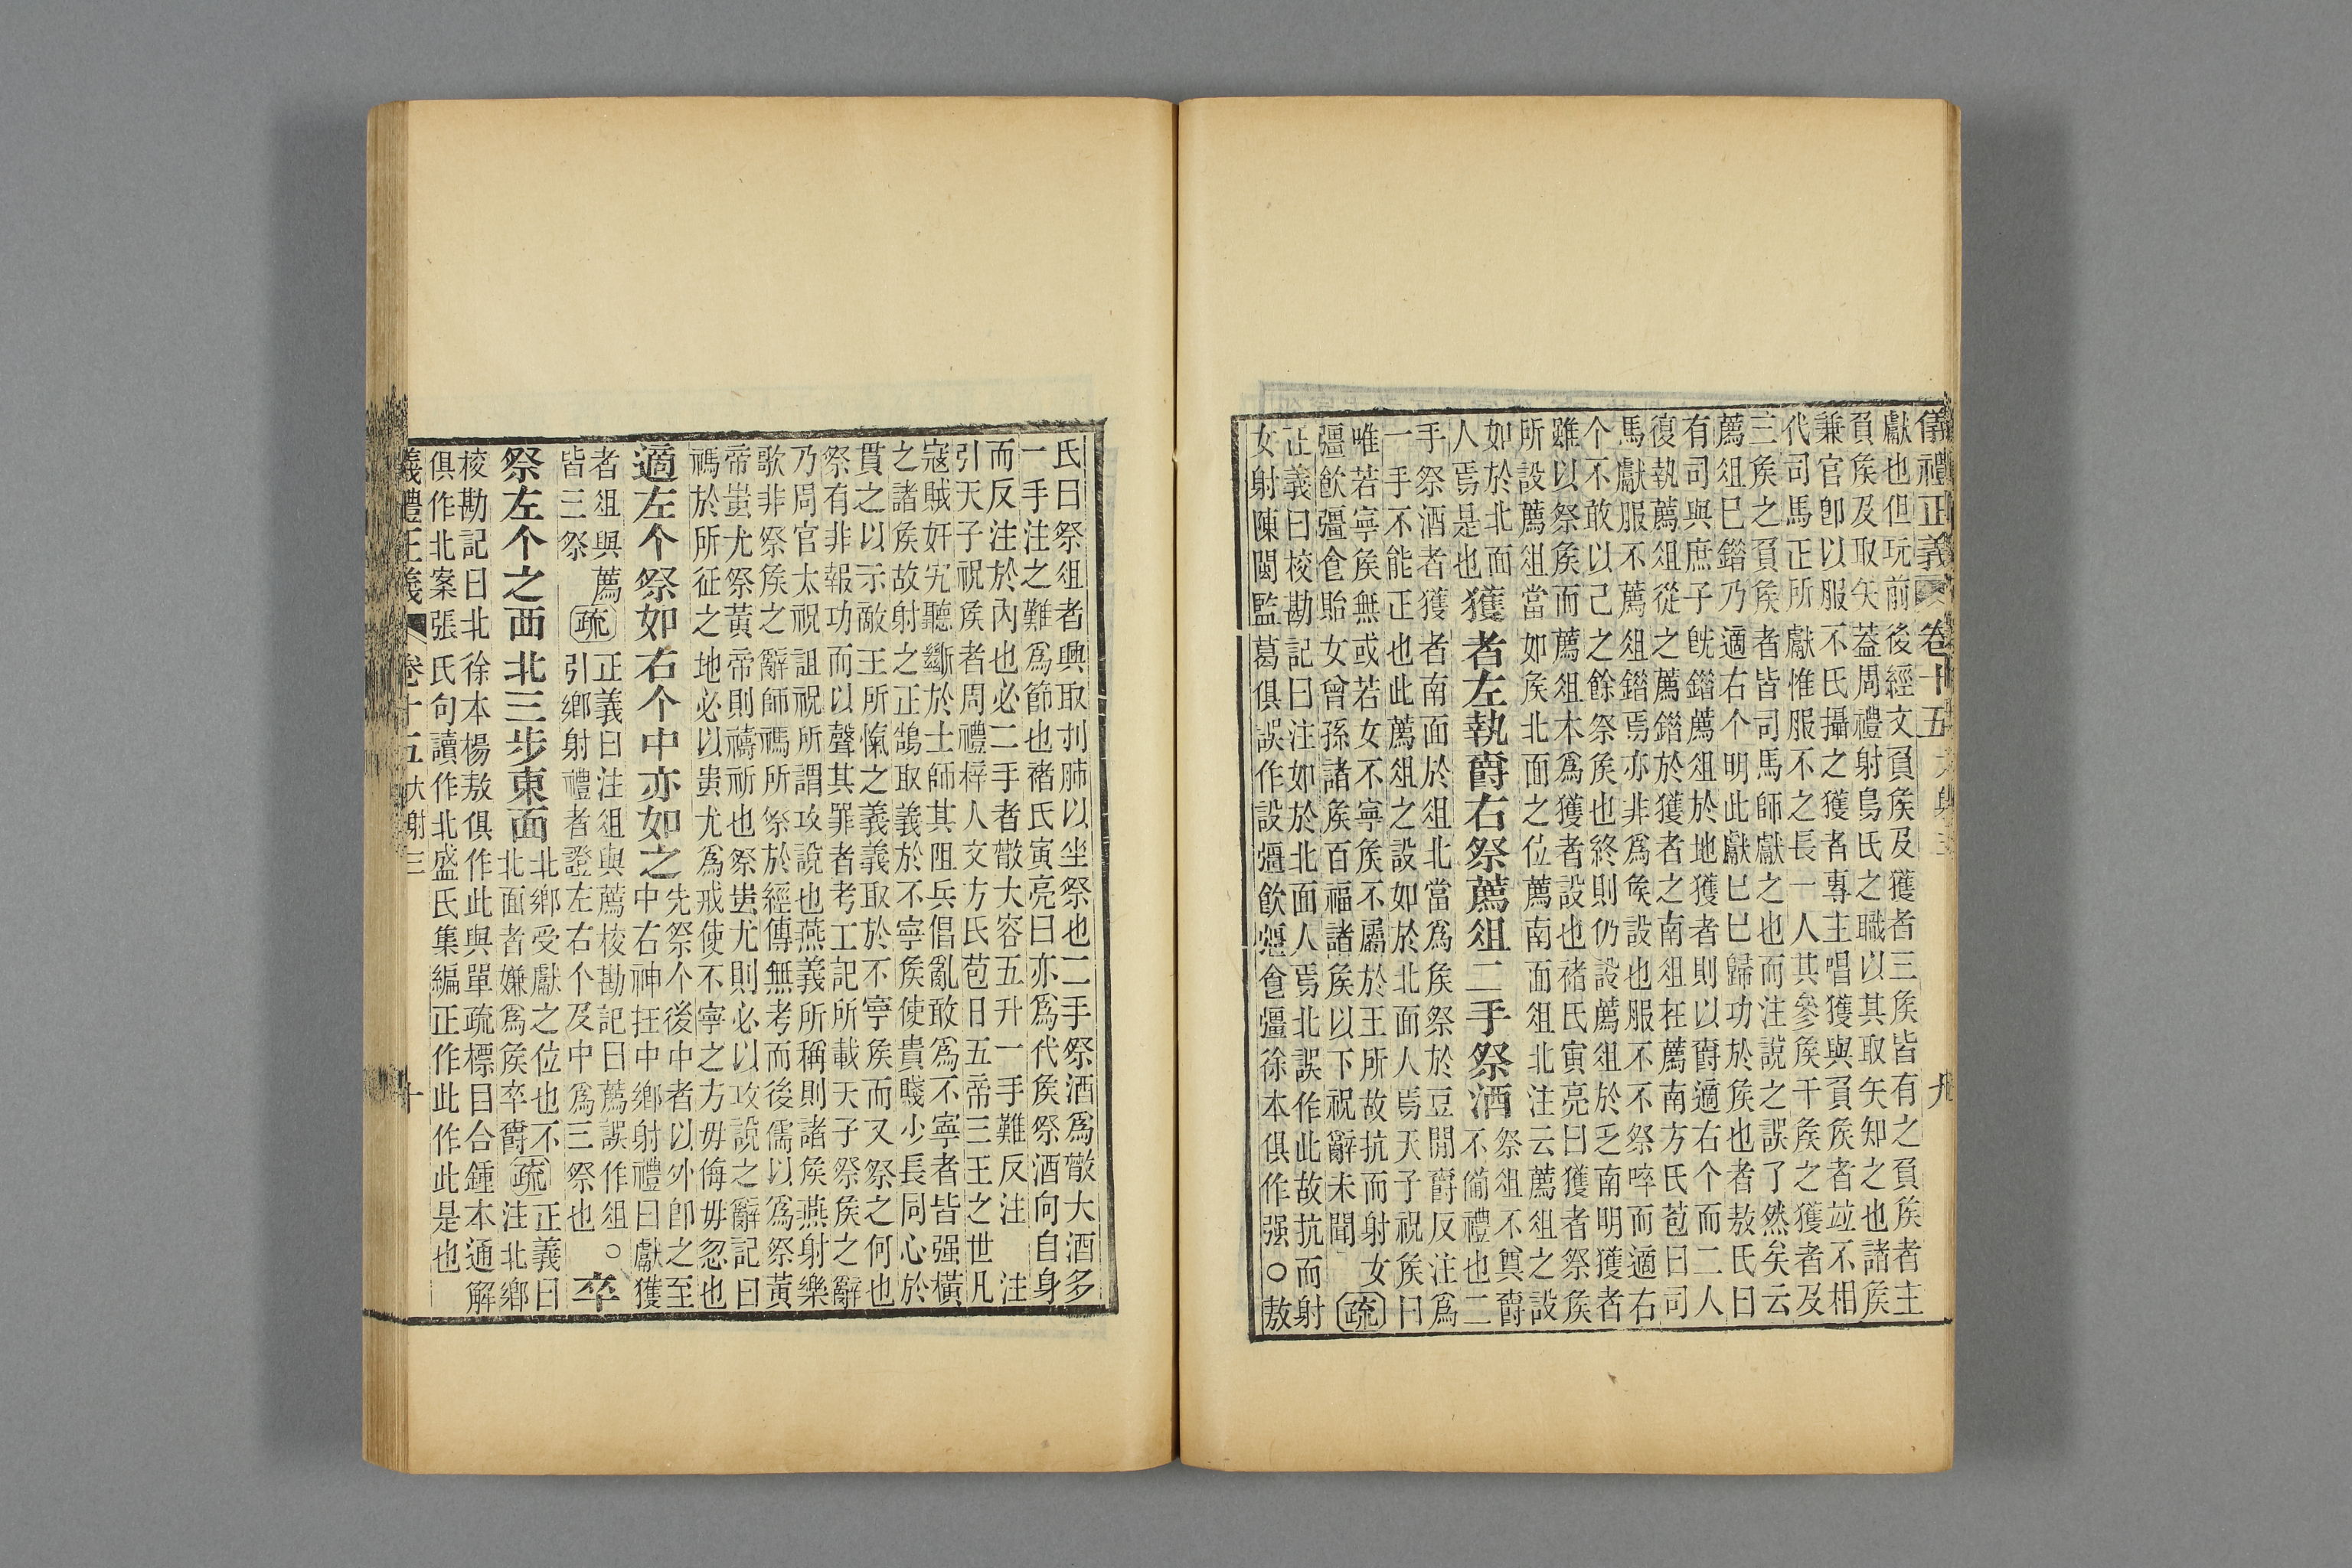 儀禮正義 卷十五
獻也但玩前後經文負矦及獲者三矦皆有之負矦者主
負矦及取矢葢周禮射鳥氏之職以其取矢知之也諸矦
兼官卽以服不氏攝之獲者專主唱獲與負矦者竝不相
代司馬正所獻惟服不之長一人其參矦干矦之獲者及
三矦之負矦者皆司馬師獻之也而注說之誤了然矣云
薦俎已錯乃適右个明此獻已已歸功於矦也者敖氏曰
有司與庶子旣錯薦俎於地獲者則以爵適右个而二人
復執薦俎從之薦錯於獲者之南俎在薦南方氏苞曰司
馬獻服不薦俎錯焉亦非爲矦設也服不不祭啐而適右
个不敢以己之餘祭矦也終則仍設薦俎於乏南明獲者
雖以祭矦而薦俎木爲獲者設也褚氏寅亮曰獲者祭矦
所設薦俎當如矦北面之位薦南面俎北注云薦俎之設
如於北面
人焉是也
獲者左執爵右祭薦俎二手祭酒
祭俎不奠爵
不備禮也二
手祭酒者獲者南面於俎北當爲矦祭於豆閒爵反注爲
一手不能正也此薦俎之設如於北面人焉天子祝矦曰
唯若寧矦無或若女不寧矦不屬於王所故抗而射女
彊飮彊食貽女曾孫諸矦百福諸矦以下祝辭未聞
疏
正義曰校勘記曰注如於北面人焉北誤作此故抗而射
女射陳閩監葛俱誤作設彊飮彊食彊徐本俱作强○敖
氏曰祭俎者興取刌肺以坐祭也二手祭酒爲散大酒多
一手注之難爲節也褚氏寅亮曰亦爲代矦祭酒向自身
而反注於內也必二手者散大容五升一手難反注 注
引天子祝矦者周禮梓人文方氏苞曰五帝三王之世凡
寇賊奸宄聽斷於士師其阻兵倡亂敢爲不寧者皆强橫
之諸矦故射之正鵠取義於不寧矦使貴賤少長同心於
貫之以示敵王所愾之義義取於不寧矦而又祭之何也
祭有非報功而以聲其罪者考工記所載天子祭矦之辭
乃周官太祝詛祝所謂攻說也燕義所稱則諸矦燕射樂
歌非祭矦之辭師禡所祭於經傳無考而後儒以爲祭黃
帝蚩尤祭黃帝則禱祈也祭蚩尤則必以攻說之辭記曰
禡於所征之地必以蚩尤爲戒使不寧之方毋侮毋忽也
適左个祭如右个中亦如之
先祭个後中者以外卽之至
中右神在中鄉射禮曰獻獲
者俎與薦
皆三祭
疏
正義曰注俎與薦校勘記曰薦誤作俎○
引鄉射禮者證左右个及中爲三祭也
卒
祭左个之西北三步東面
北鄉受獻之位也不
北面者嫌爲矦卒爵
疏
正義曰
注北鄉
校勘記曰北徐本楊敖俱作此與單疏標目合鍾本通解
俱作北案張氏句讀作北盛氏集編正作此作此是也
卷十五 大射三 十